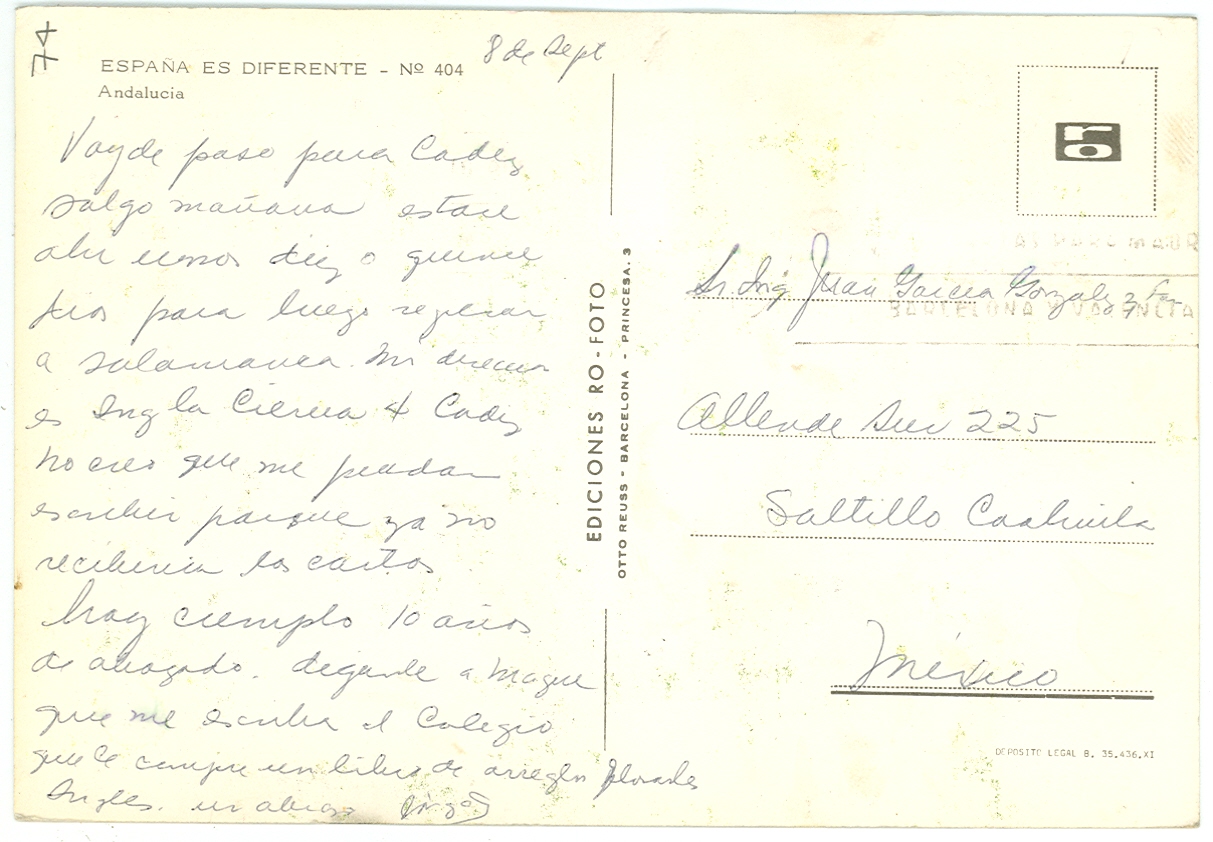 74
8 de Sept
ESPAÑA ES DIFERENTE - Nº 404
Andalucia
Voy de paso para Cadiz
salgo mañana estare
ahi unos diez o quince
dias para luego regresar
a Salamanca. Mi direccion
es Ing la Cierva 4 Cadiz
no creo que me puedan
escribir porque ya no
recibiria las cartas
hoy cumplo 10 años
de abogado. diganle a Maque
que me escriba al Colegio
que le compre un libro de arreglos florales
Ingles. un abrazo
EDICIONES RO-FOTO
OTTO REUSS - BARCELONA - PRINCESA, 3
ro
BARCELONA Y VALENCIA
Sr Ing Juan Garcia Gonzalez y Fam
Allende Sur 225
Saltillo Coahuila
México
DEPOSITO LEGAL B. 35.436.XI